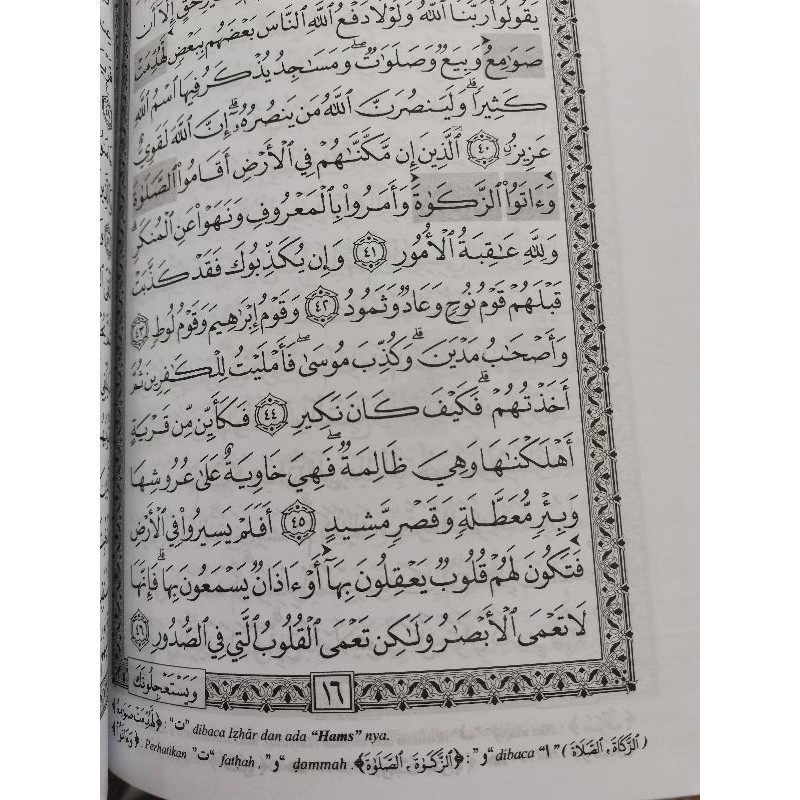 يَقُولُوا۟ رَبُّنَا ٱللَّهُ وَلَوْلَا دَفْعُ ٱللَّهِ ٱلنَّاسَ بَعْضَهُم بِبَعْضٍ لَّهُدِّمَتْ
صَوَٰمِعُ وَبِيَعٌ وَصَلَوَٰتٌ وَمَسَٰجِدُ يُذْكَرُ فِيهَا ٱسْمُ ٱللَّهِ
كَثِيرًا ۗ وَلَيَنصُرَنَّ ٱللَّهُ مَن يَنصُرُهُۥٓ ۗ إِنَّ ٱللَّهَ لَقَوِىٌّ
عَزِيزٌ ٤٠ ٱلَّذِينَ إِن مَّكَّنَّٰهُمْ فِى ٱلْأَرْضِ أَقَامُوا۟ ٱلصَّلَوٰةَ
وَءَاتَوُا۟ ٱلزَّكَوٰةَ وَأَمَرُوا۟ بِٱلْمَعْرُوفِ وَنَهَوْا۟ عَنِ ٱلْمُنكَرِ ۗ
وَلِلَّهِ عَٰقِبَةُ ٱلْأُمُورِ ٤١ وَإِن يُكَذِّبُوكَ فَقَدْ كَذَّبَتْ
قَبْلَهُمْ قَوْمُ نُوحٍ وَعَادٌ وَثَمُودُ ٤٢ وَقَوْمُ إِبْرَٰهِيمَ وَقَوْمُ لُوطٍ ٤٣
وَأَصْحَٰبُ مَدْيَنَ ۖ وَكُذِّبَ مُوسَىٰ ۖ فَأَمْلَيْتُ لِلْكَٰفِرِينَ ثُمَّ
أَخَذْتُهُمْ ۖ فَكَيْفَ كَانَ نَكِيرِ ٤٤ فَكَأَيِّن مِّن قَرْيَةٍ
أَهْلَكْنَٰهَا وَهِىَ ظَالِمَةٌ فَهِىَ خَاوِيَةٌ عَلَىٰ عُرُوشِهَا
وَبِئْرٍ مُّعَطَّلَةٍ وَقَصْرٍ مَّشِيدٍ ٤٥ أَفَلَمْ يَسِيرُوا۟ فِى ٱلْأَرْضِ
فَتَكُونَ لَهُمْ قُلُوبٌ يَعْقِلُونَ بِهَآ أَوْ ءَاذَانٌ يَسْمَعُونَ بِهَا ۖ فَإِنَّهَا
لَا تَعْمَى ٱلْأَبْصَٰرُ وَلَٰكِن تَعْمَى ٱلْقُلُوبُ ٱلَّتِى فِى ٱلصُّدُورِ ٤٦
وَيَسْتَعْجِلُونَكَ
١٦
﴿لَّهُدِّمَتْ صَوَٰمِعُ﴾ : "ت" dibaca Iẓhār dan ada "Hams" nya.
﴿وَءَاتَوُا۟﴾ . Perhatikan "ت" fatḥah , "و" ḍammah . ﴿ٱلزَّكَوٰةَ ، ٱلصَّلَوٰةَ﴾ : "و" dibaca "ا" (ٱلزَّكَاةَ ، ٱلصَّلَاةَ)